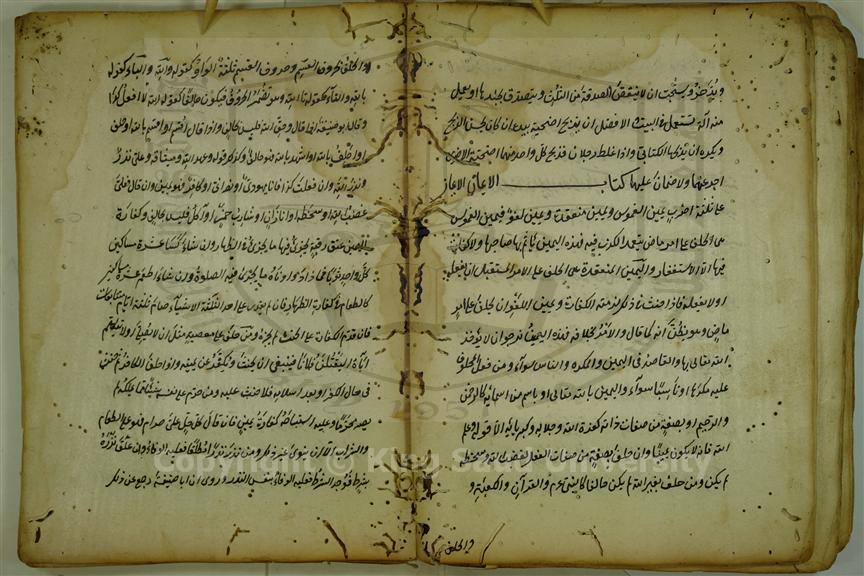 ويدخر ويستحب ان لا ينقص الصدقة من الثلث ويتصدق بجلدها او يعمل
منه آلة تستعمل في البيت والافضل ان يذبح اضحيته بيده ان كان يحسن الذبح
ويكره ان يذبحها الكتابي واذا غلط رجلان فذبح كل واحد منهما اضحية الآخر
اجزء عنهما ولا ضمان عليهما كتاب الايمان الايمان
على ثلثة اضرب يمين الغموس ويمين منعقدة ويمين لغو فيمين الغموس
هي الحلف على امر ماض يتعمد الكذب فيه فهذه اليمين يأثم بها صاحبها ولا كفارة
فيها الا الاستغفار واليمين المنعقدة هي الحلف على الامر المستقبل ان يفعله
او لا يفعله فاذا حنث في ذلك لزمته الكفارة ويمين اللغو ان يحلف على امر
ماض وهو يظن انه كما قال والامر بخلافه فهذه اليمين نرجو ان لا يؤاخذ
الله تعالى بها والقاصد في اليمين والمكره والناسي سواء ومن فعل المحلوف
عليه مكرها او ناسيا سواء واليمين بالله تعالى او باسم من اسمائه كالرحمن
والرحيم او بصفة من صفات ذاته كعزة الله وجلاله وكبريائه الا قوله وعلم
الله فانه لا يكون يمينا وان حلف بصفة من صفات الفعل كغضب الله وسخطه
لم يكن ومن حلف بغير الله لم يكن حالفا كالنبي عم والقرآن والكعبة و
والحلف
والحلف بحروف القسم وحروف القسم ثلثة الواو كقوله والله والباء كقوله
بالله والتاء كقوله تالله وقد تضمر الحروف فيكون حالفا كقوله الله لا افعل كذا
وقال ابو حنيفة اذا قال وحق الله فليس بحالف واذا قال اقسم او اقسم بالله او حلف
او احلف بالله او اشهد بالله فهو حالف وكذلك قوله وعهد الله وميثاقه وعلي نذر
ونذر الله وان فعلت كذا فانا يهودي او نصراني او كافر فهو يمين وان قال فعلي
غضب الله او سخطه او انا زان او شارب خمر او آكل فليس بحالف وكفارة
اليمين عتق رقبة يجزئ فيها ما يجزئ في الظهار وان شاء كسا عشرة مساكين
كل واحد ثوبا فما زاد وادناه ما يجزئ فيه الصلوة وان شاء اطعم عشرة مساكين
كالطعام في كفارة الظهار فان لم يقدر على احد الثلثة الاشياء صام ثلثة ايام متتابعات
فان قدم الكفارة على الحنث لم يجزه ومن حلف على معصية مثل ان لا يصلي او لا يكلم
اباه او ليقتلن فلانا فينبغي ان يحنث ويكفر عن يمينه واذا حلف الكافر ثم حنث
في حال الكفر او بعد اسلامه فلا حنث عليه ومن حرم على نفسه شيئا مما يملكه لم
يصر محرما وعليه ان استباحه كفارة يمين فان قال كل حل علي حرام فهو على الطعام
والشراب الا ان ينوي غير ذلك ومن نذر نذرا مطلقا فعليه الوفاء وان علق نذره
بشرط فوجد الشرط فعليه الوفاء بنفس النذر وروي ان ابا حنيفة رجع عن ذلك
Copyright © King Saud University